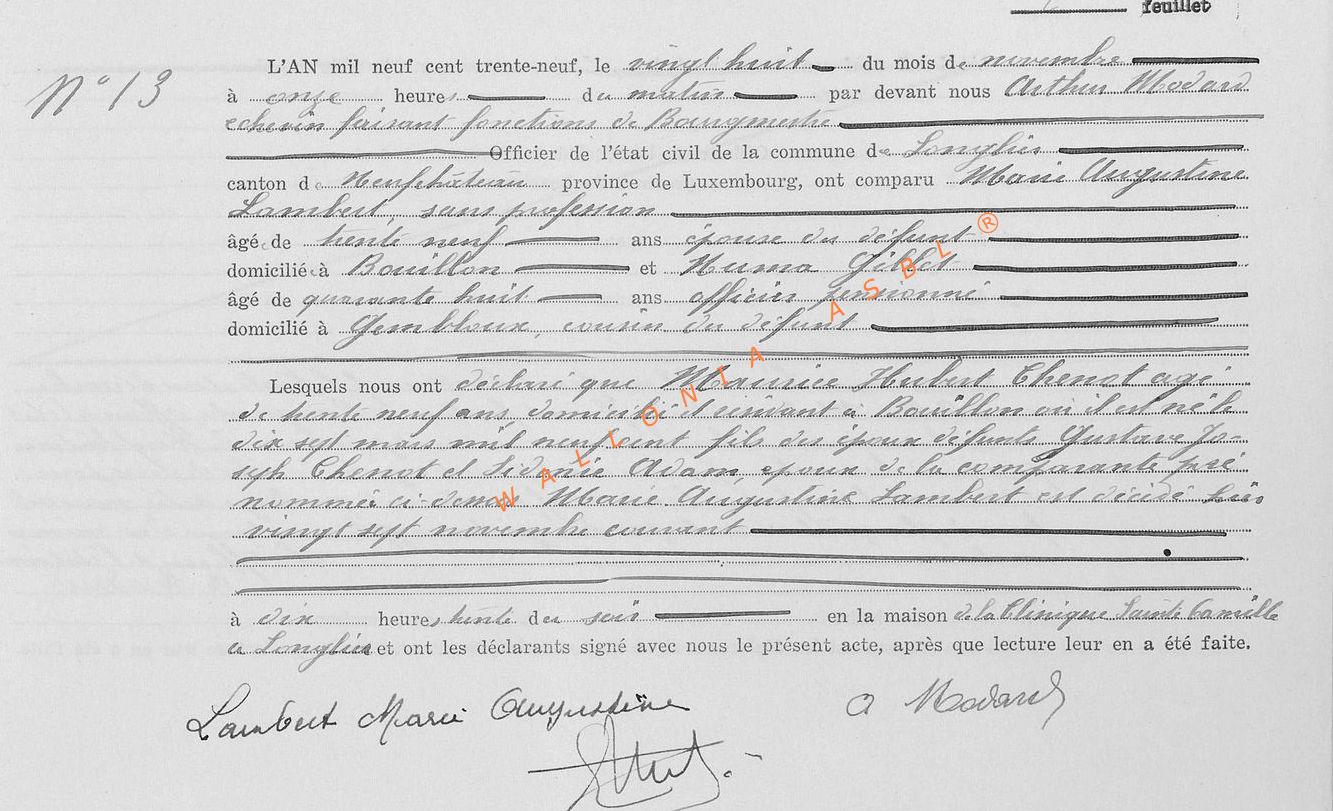 feuillet
N° 13
L'AN mil neuf cent trente-neuf, le vingt huit du mois de novembre
à onze heures du matin par devant nous Arthur Modard
echevin faisant fonctions de Bourgmestre
Officier de l'état civil de la commune de Longlier
canton de Neufchâteau province de Luxembourg, ont comparu Marie Augustine
Lambert, sans profession
âgée de trente neuf ans épouse du défunt
domiciliée à Bouillon et Numa Gillet
âgé de quarante huit ans officier pensionné
domicilié à Gembloux, cousin du défunt
Lesquels nous ont déclaré que Maurice Hubert Chenot agé
de trente neuf ans, domicilié et résidant à Bouillon où il est né le
dix sept mars mil neuf cent fils des époux défunts Gustave Jo-
seph Chenot et Sidonie Adam, époux de la comparante pré
nommée ci-dessus Marie Augustine Lambert est décédé hier
vingt sept novembre courant
à dix heures trente du soir en la maison de la Clinique Sainte Camille
à Longlier et ont les déclarants signé avec nous le présent acte, après que lecture leur en a été faite.
Lambert Marie Augustine
A Modard
WALLONIA ASBL ®